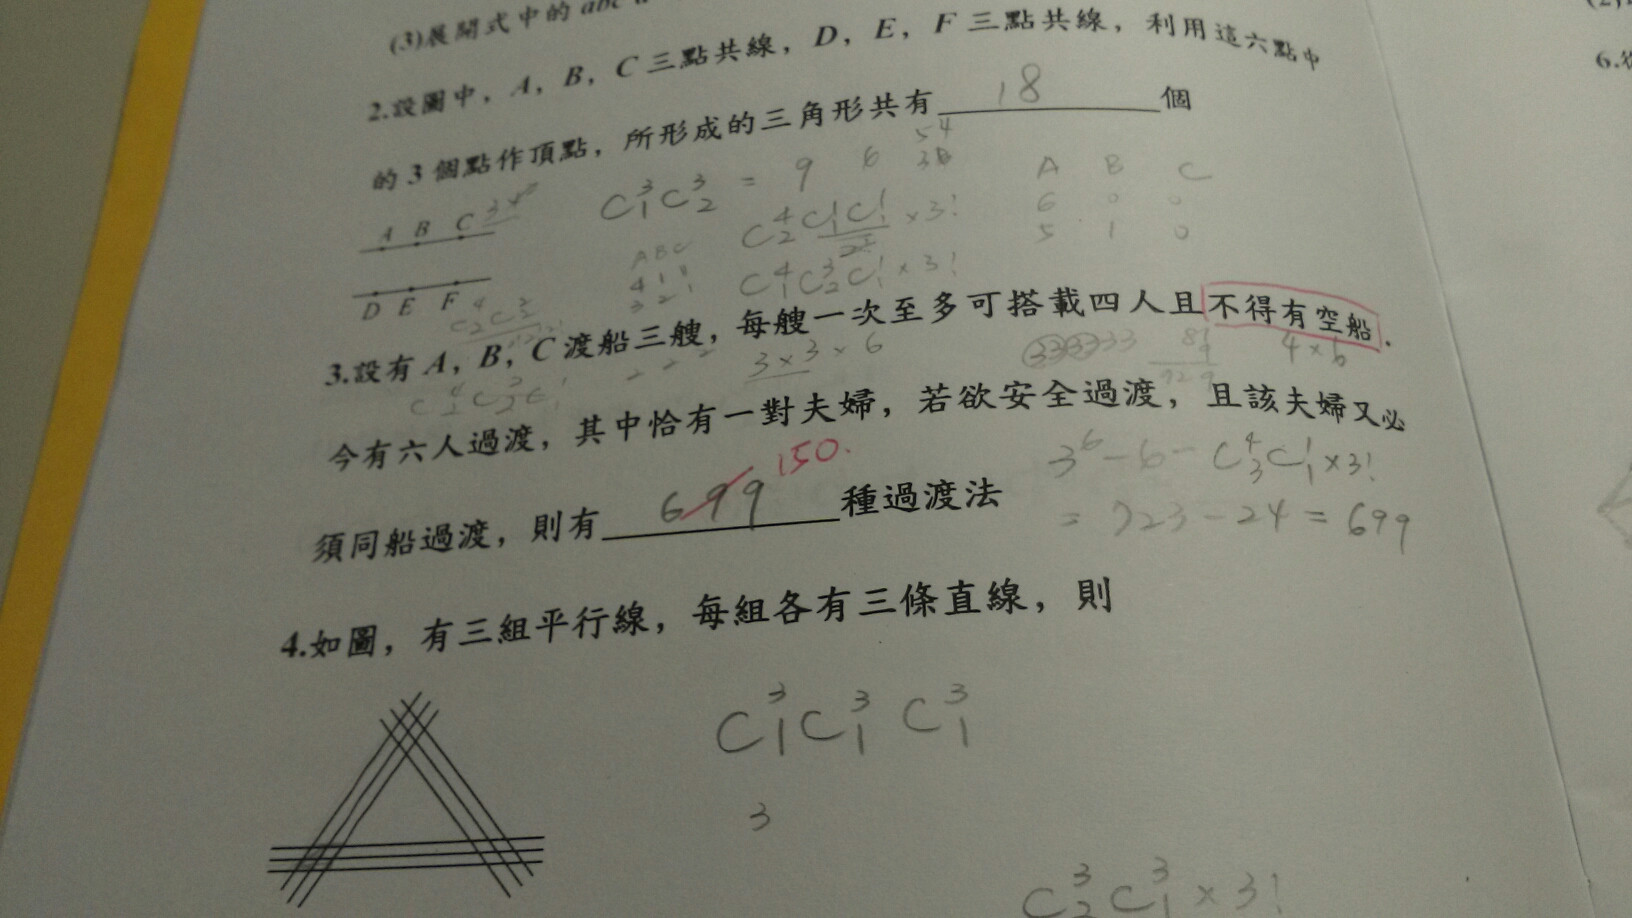 (3)展開式中的 abc
2.設圖中，A，B，C 三點共線，D，E，F 三點共線，利用這六點中
的 3 個點作頂點，所形成的三角形共有 18 個
C³₁C³₂ = 9 6
A B C
6 0 0
5 1 0
C⁴₂C¹₁C¹₁ ×3!
C⁴₁C³₂C¹₁ ×3!
A B C
4 1 1
3 2 1
A B C
D E F
3.設有 A，B，C 渡船三艘，每艘一次至多可搭載四人且不得有空船．
3×3×6
4×6
今有六人過渡，其中恰有一對夫婦，若欲安全過渡，且該夫婦又必
須同船過渡，則有 699 150. 種過渡法
3⁶-6-C⁴₃C¹₁×3!
= 723-24 = 699
4.如圖，有三組平行線，每組各有三條直線，則
C³₁C³₁C³₁
3
C³₂C³₁×3!
6.